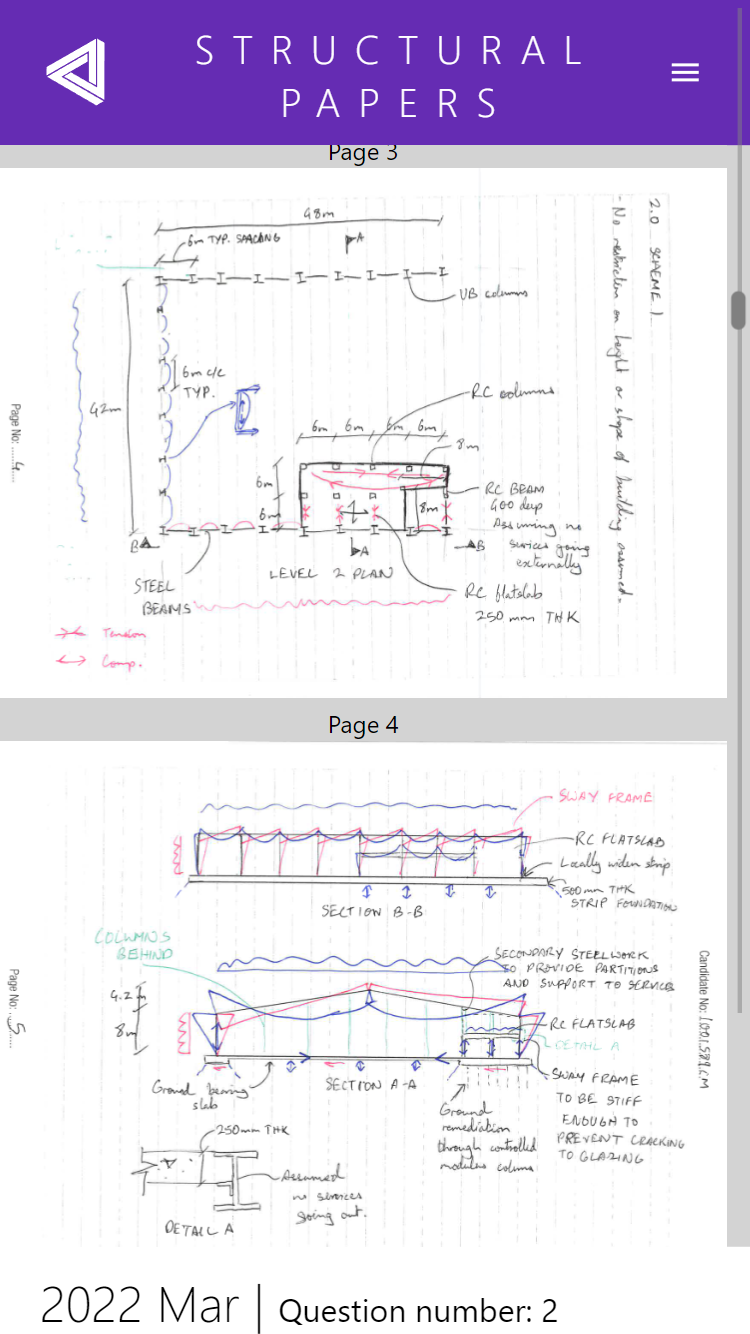 STRUCTURAL
PAPERS
Page 3
2.0 SCHEME 1
- No restriction on height or shape of building assumed.
48m
6m TYP. SPACING
A
UB columns
6m c/c
TYP.
42m
RC columns
6m 6m 6m 6m
8m
6m
6m
8m
RC BEAM
400 deep
Assuming no
services going
externally
B
A
B
LEVEL 2 PLAN
STEEL
BEAMS
RC flatslab
250 mm THK
Tension
Comp.
Page No: ......4......
Page 4
SWAY FRAME
RC FLATSLAB
Locally widen strip
500mm THK
STRIP FOUNDATION
SECTION B-B
COLUMNS
BEHIND
SECONDARY STEELWORK
TO PROVIDE PARTITIONS
AND SUPPORT TO SERVICES
4.2m
8m
RC FLATSLAB
DETAIL A
SWAY FRAME
TO BE STIFF
ENOUGH TO
PREVENT CRACKING
TO GLAZING
SECTION A-A
Ground bearing
slab
Ground
remediation
through controlled
modulus column
250mm THK
Assumed
no services
going out.
DETAIL A
Page No: ......5......
Candidate No:
2022 Mar | Question number: 2